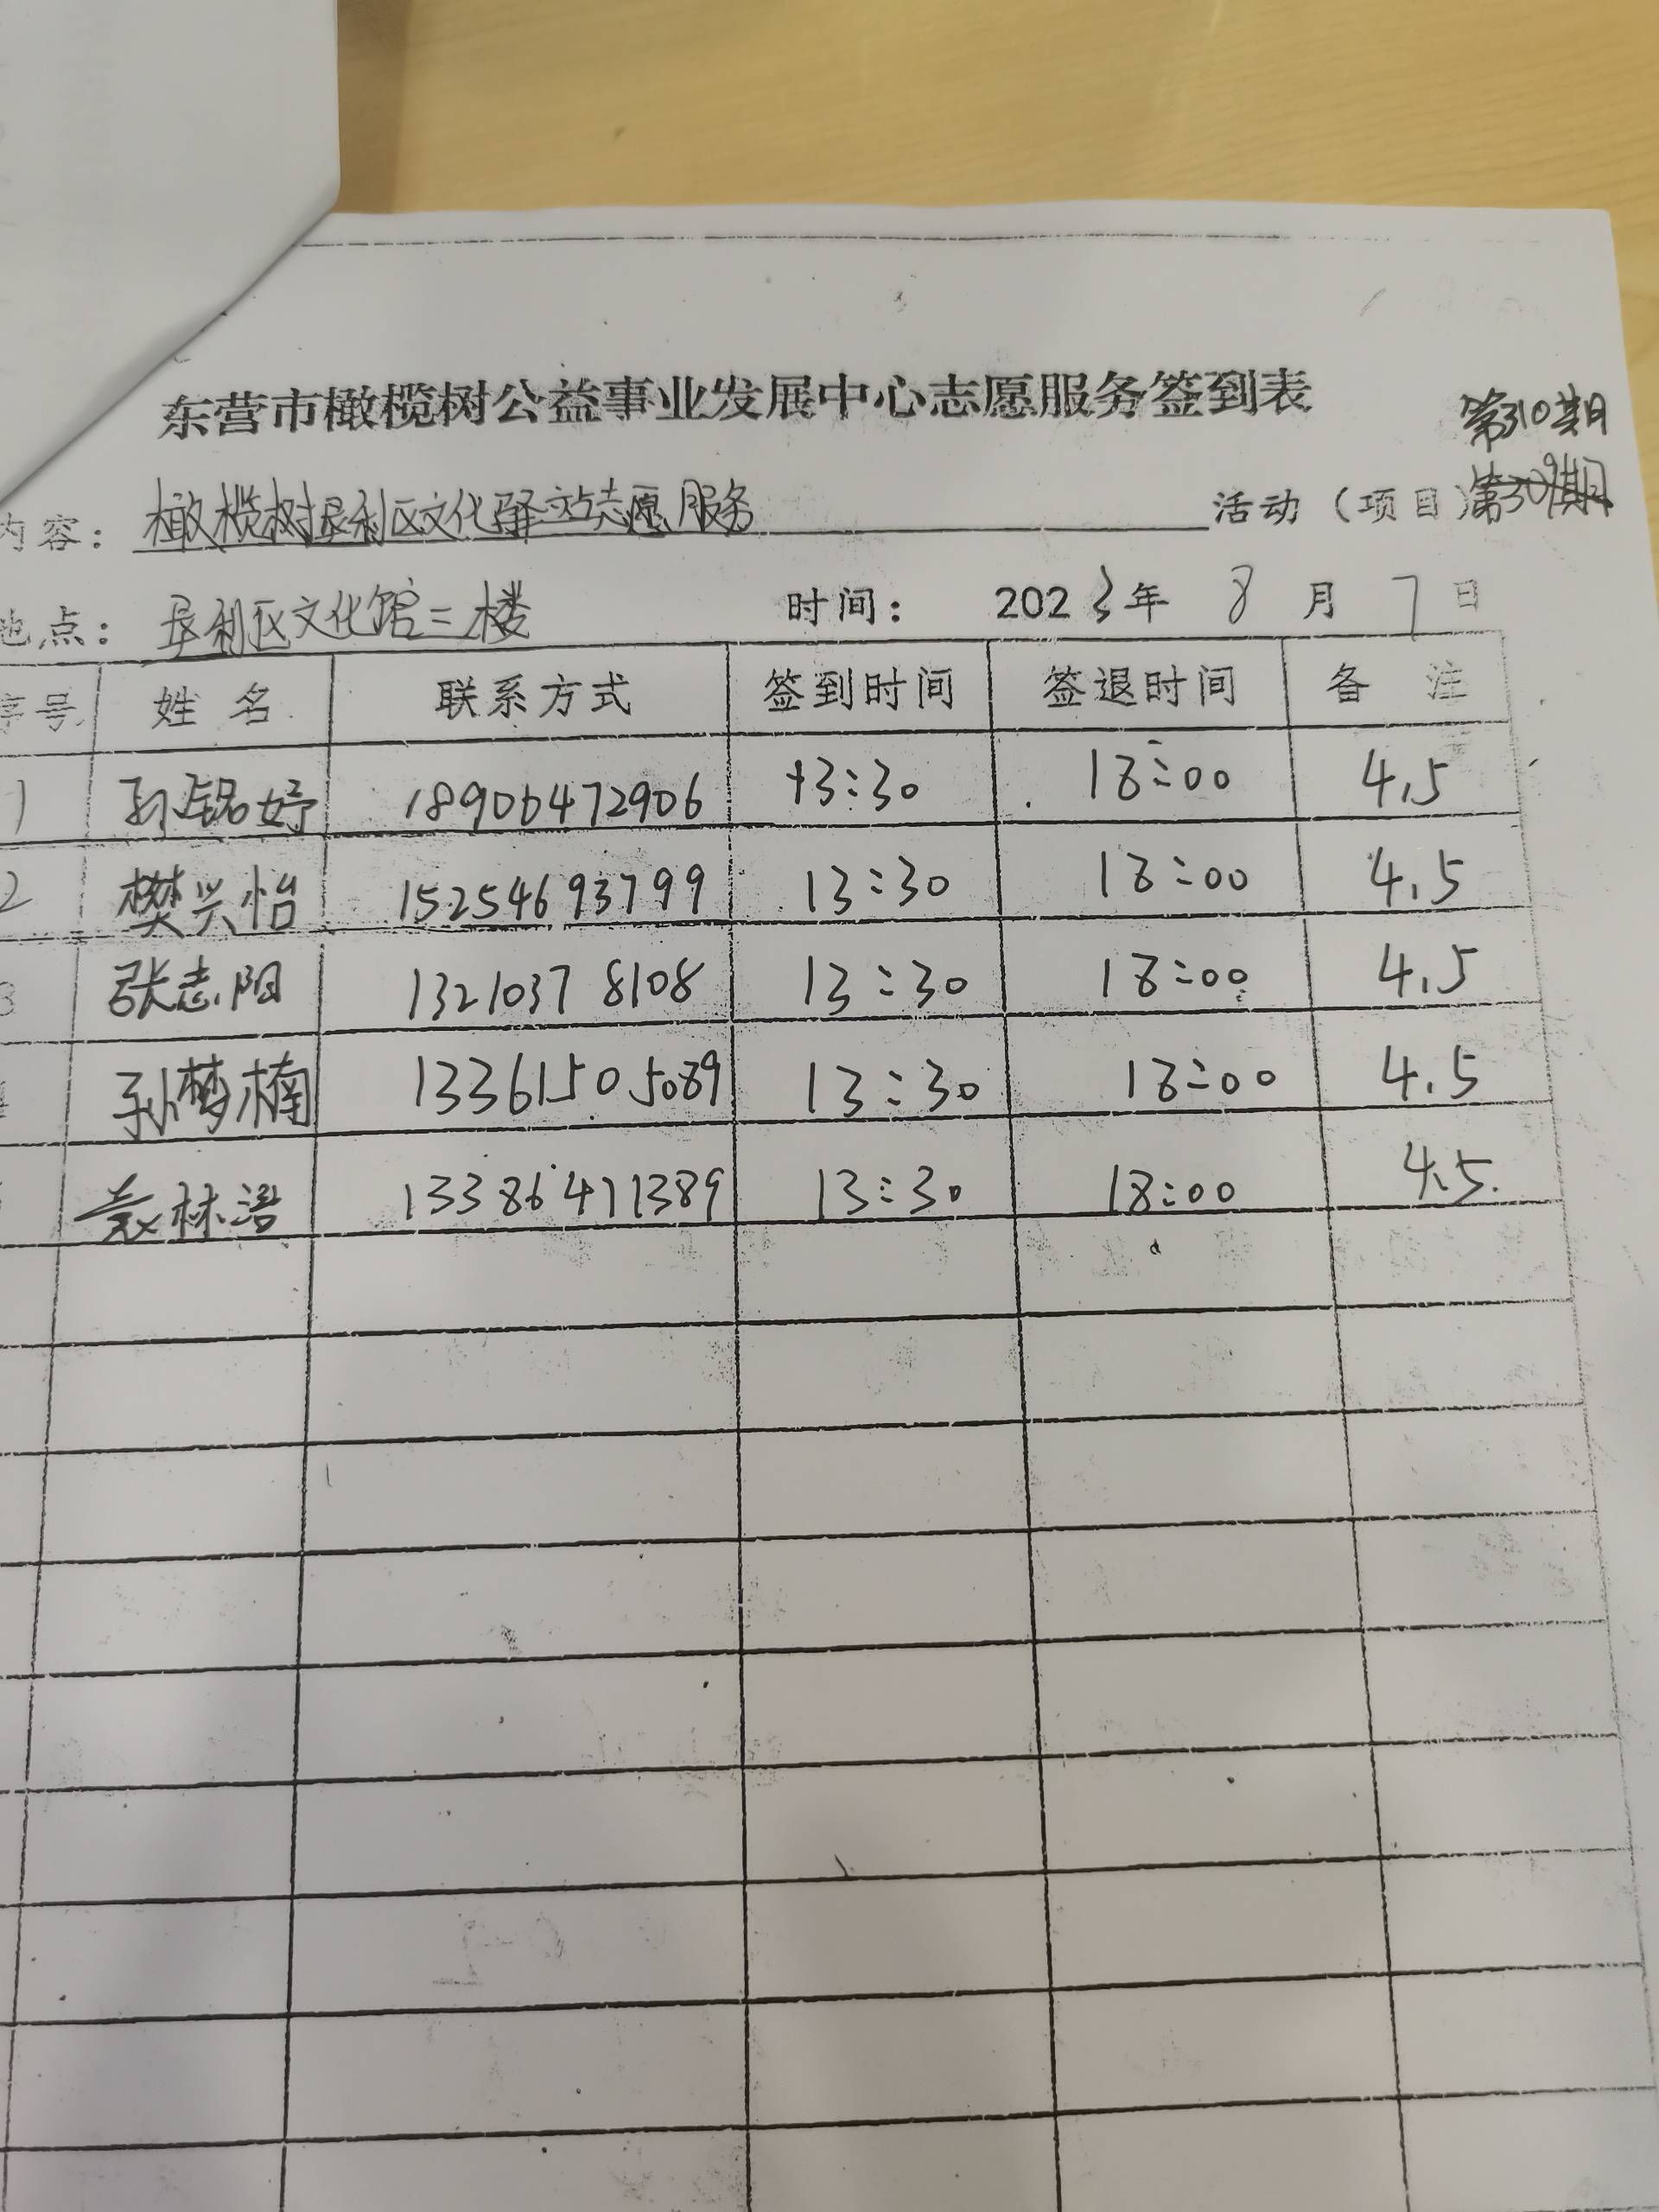 东营市橄榄树公益事业发展中心志愿服务签到表
第310期
内容：橄榄树垦利区文化驿站志愿服务 活动（项目）第309期
地点：垦利区文化馆二楼 时间：2023年 8月 7日
序号 姓名 联系方式 签到时间 签退时间 备注
1 孙铭妤 18906472906 13:30 18:00 4.5
2 樊兴怡 15254693799 13:30 18:00 4.5
3 张志阳 13210378108 13:30 18:00 4.5
孙梦楠 13361505089 13:30 18:00 4.5
林浩 13386471389 13:30 18:00 4.5